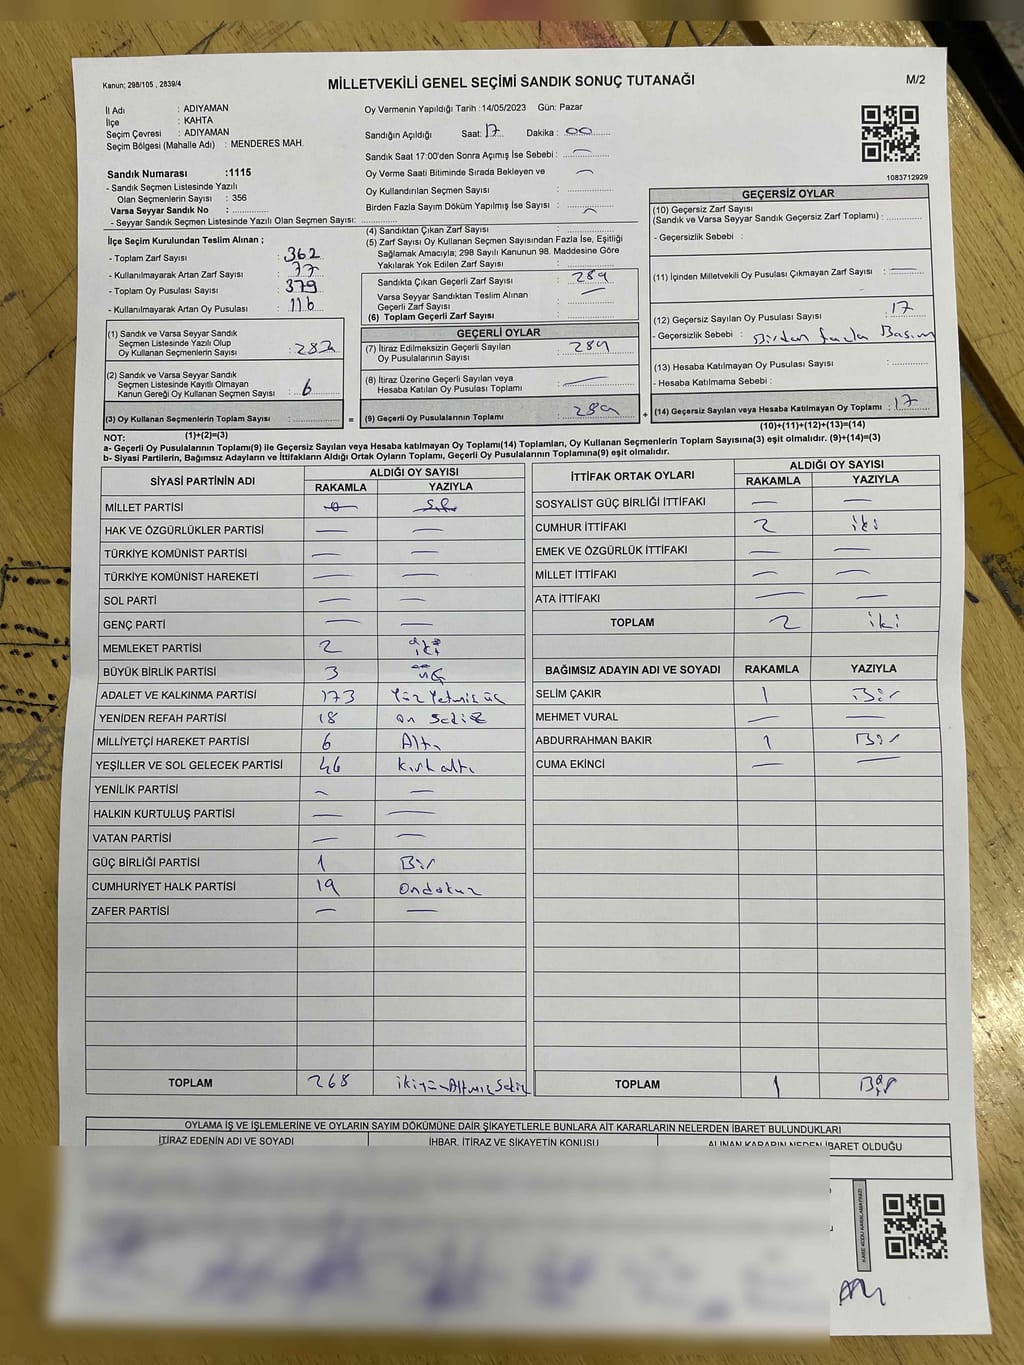 Kanun; 298/105 , 2839/4
MİLLETVEKİLİ GENEL SEÇİMİ SANDIK SONUÇ TUTANAĞI
M/2
İl Adı : ADIYAMAN
İlçe : KAHTA
Seçim Çevresi : ADIYAMAN
Seçim Bölgesi (Mahalle Adı) : MENDERES MAH.
Oy Vermenin Yapıldığı Tarih : 14/05/2023 Gün: Pazar
Sandığın Açıldığı Saat: 17 Dakika : 00
Sandık Saat 17:00'den Sonra Açımış İse Sebebi : —
Oy Verme Saati Bitiminde Sırada Bekleyen ve
Oy Kullandırılan Seçmen Sayısı : —
Birden Fazla Sayım Döküm Yapılmış İse Sayısı : —
1083712929
Sandık Numarası :1115
- Sandık Seçmen Listesinde Yazılı
Olan Seçmenlerin Sayısı : 356
Varsa Seyyar Sandık No :
- Seyyar Sandık Seçmen Listesinde Yazılı Olan Seçmen Sayısı:
İlçe Seçim Kurulundan Teslim Alınan ;
- Toplam Zarf Sayısı : 362
- Kullanılmayarak Artan Zarf Sayısı : 77
- Toplam Oy Pusulası Sayısı : 379
- Kullanılmayarak Artan Oy Pusulası :
(1) Sandık ve Varsa Seyyar Sandık
Seçmen Listesinde Yazılı Olup
Oy Kullanan Seçmenlerin Sayısı :
(2) Sandık ve Varsa Seyyar Sandık
Seçmen Listesinde Kayıtlı Olmayan
Kanun Gereği Oy Kullanan Seçmen Sayısı : 6
(3) Oy Kullanan Seçmenlerin Toplam Sayısı :
(1)+(2)=(3)
(4) Sandıktan Çıkan Zarf Sayısı :
(5) Zarf Sayısı Oy Kullanan Seçmen Sayısından Fazla İse, Eşitliği
Sağlamak Amacıyla; 298 Sayılı Kanunun 98. Maddesine Göre
Yakılarak Yok Edilen Zarf Sayısı :
Sandıkta Çıkan Geçerli Zarf Sayısı : 289
Varsa Seyyar Sandıktan Teslim Alınan
Geçerli Zarf Sayısı : —
(6) Toplam Geçerli Zarf Sayısı :
GEÇERLİ OYLAR
(7) İtiraz Edilmeksizin Geçerli Sayılan
Oy Pusulalarının Sayısı : 289
(8) İtiraz Üzerine Geçerli Sayılan veya
Hesaba Katılan Oy Pusulası Toplamı : —
= (9) Geçerli Oy Pusulalarının Toplamı : 289 +
GEÇERSİZ OYLAR
(10) Geçersiz Zarf Sayısı
(Sandık ve Varsa Seyyar Sandık Geçersiz Zarf Toplamı) :
- Geçersizlik Sebebi :
(11) İçinden Milletvekili Oy Pusulası Çıkmayan Zarf Sayısı : —
(12) Geçersiz Sayılan Oy Pusulası Sayısı : 17
- Geçersizlik Sebebi : Birden fazla Basım
(13) Hesaba Katılmayan Oy Pusulası Sayısı :
- Hesaba Katılmama Sebebi :
(14) Geçersiz Sayılan veya Hesaba Katılmayan Oy Toplamı : 17
(10)+(11)+(12)+(13)=(14)
NOT:
a- Geçerli Oy Pusulalarının Toplamı(9) ile Geçersiz Sayılan veya Hesaba katılmayan Oy Toplamı(14) Toplamları, Oy Kullanan Seçmenlerin Toplam Sayısına(3) eşit olmalıdır. (9)+(14)=(3)
b- Siyasi Partilerin, Bağımsız Adayların ve İttifakların Aldığı Ortak Oyların Toplamı, Geçerli Oy Pusulalarının Toplamına(9) eşit olmalıdır.
SİYASİ PARTİNİN ADI
ALDIĞI OY SAYISI
RAKAMLA YAZIYLA
MİLLET PARTİSİ
HAK VE ÖZGÜRLÜKLER PARTİSİ — —
TÜRKİYE KOMÜNİST PARTİSİ — —
TÜRKİYE KOMÜNİST HAREKETİ — —
SOL PARTİ — —
GENÇ PARTİ — —
MEMLEKET PARTİSİ 2 iki
BÜYÜK BİRLİK PARTİSİ 3 üç
ADALET VE KALKINMA PARTİSİ 173 Yüz Yetmiş üç
YENİDEN REFAH PARTİSİ 18 on Sekiz
MİLLİYETÇİ HAREKET PARTİSİ 6 Altı
YEŞİLLER VE SOL GELECEK PARTİSİ 46 Kırk altı
YENİLİK PARTİSİ — —
HALKIN KURTULUŞ PARTİSİ — —
VATAN PARTİSİ — —
GÜÇ BİRLİĞİ PARTİSİ 1 Bir
CUMHURİYET HALK PARTİSİ 19 Ondokuz
ZAFER PARTİSİ — —
TOPLAM 268 ikiyüz Altmış Sekiz
İTTİFAK ORTAK OYLARI
ALDIĞI OY SAYISI
RAKAMLA YAZIYLA
SOSYALİST GÜÇ BİRLİĞİ İTTİFAKI — —
CUMHUR İTTİFAKI 2 iki
EMEK VE ÖZGÜRLÜK İTTİFAKI — —
MİLLET İTTİFAKI — —
ATA İTTİFAKI — —
TOPLAM 2 iki
BAĞIMSIZ ADAYIN ADI VE SOYADI RAKAMLA YAZIYLA
SELİM ÇAKIR 1 Bir
MEHMET VURAL — —
ABDURRAHMAN BAKIR 1 Bir
CUMA EKİNCİ — —
TOPLAM 1 Bir
OYLAMA İŞ VE İŞLEMLERİNE VE OYLARIN SAYIM DÖKÜMÜNE DAİR ŞİKAYETLERLE BUNLARA AİT KARARLARIN NELERDEN İBARET BULUNDUKLARI
İTİRAZ EDENİN ADI VE SOYADI
İHBAR, İTİRAZ VE ŞİKAYETİN KONUSU
ALINAN KARARIN NEDEN İBARET OLDUĞU